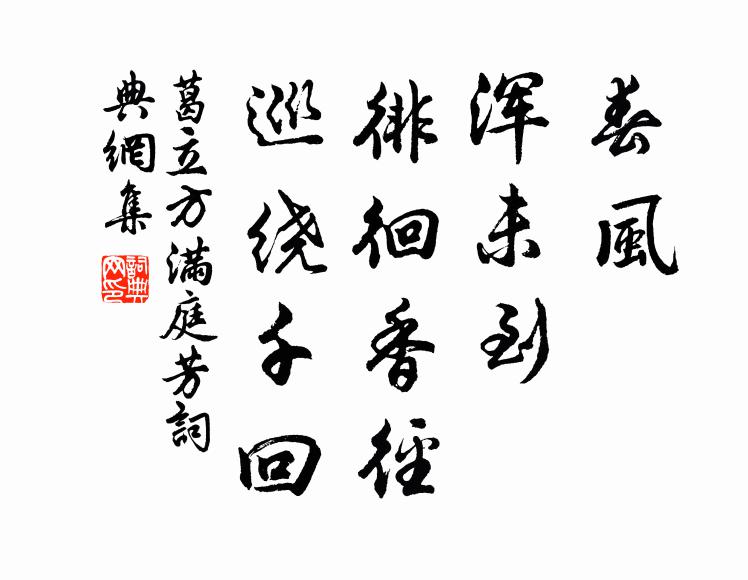 春風
浑未到
徘徊香徑
巡绕千回
葛立方滿庭芳詞
典網集
詞典
网印